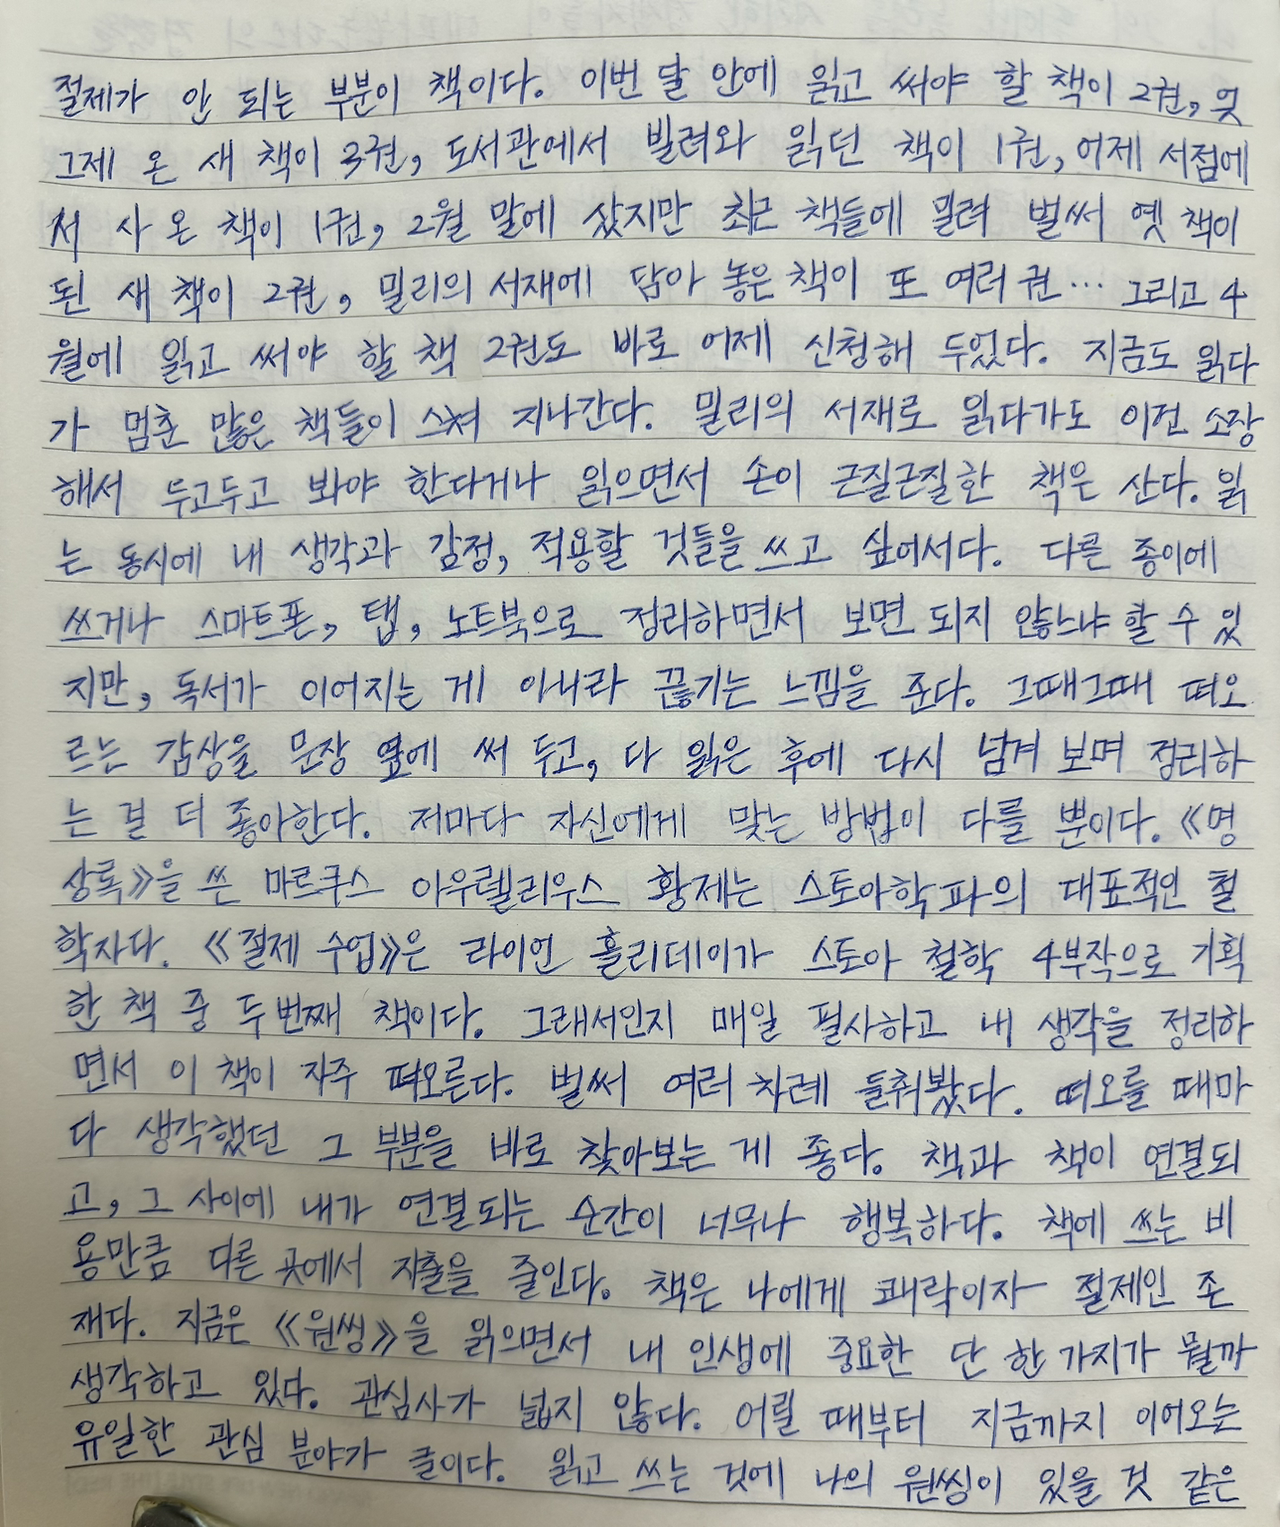 절제가 안 되는 부분이 책이다. 이번 달 안에 읽고 써야 할 책이 2권, 엊
그제 온 새 책이 3권, 도서관에서 빌려와 읽던 책이 1권, 어제 서점에
서 사 온 책이 1권, 2월 말에 샀지만 최근 책들에 밀려 벌써 옛 책이
된 새 책이 2권, 밀리의 서재에 담아 놓은 책이 또 여러 권… 그리고 4
월에 읽고 써야 할 책 2권도 바로 어제 신청해 두었다. 지금도 읽다
가 멈춘 많은 책들이 스쳐 지나간다. 밀리의 서재로 읽다가도 이건 소장
해서 두고두고 봐야 한다거나 읽으면서 손이 근질근질한 책은 산다. 읽
는 동시에 내 생각과 감정, 적용할 것들을 쓰고 싶어서다. 다른 종이에
쓰거나 스마트폰, 탭, 노트북으로 정리하면서 보면 되지 않느냐 할 수 있
지만, 독서가 이어지는 게 아니라 끊기는 느낌을 준다. 그때그때 떠오
르는 감상을 문장 옆에 써 두고, 다 읽은 후에 다시 넘겨 보며 정리하
는 걸 더 좋아한다. 저마다 자신에게 맞는 방법이 다를 뿐이다. 《명
상록》을 쓴 마르쿠스 아우렐리우스 황제는 스토아학파의 대표적인 철
학자다. 《절제 수업》은 라이언 홀리데이가 스토아 철학 4부작으로 기획
한 책 중 두 번째 책이다. 그래서인지 매일 필사하고 내 생각을 정리하
면서 이 책이 자주 떠오른다. 벌써 여러 차례 들춰봤다. 떠오를 때마
다 생각했던 그 부분을 바로 찾아보는 게 좋다. 책과 책이 연결되
고, 그 사이에 내가 연결되는 순간이 너무나 행복하다. 책에 쓰는 비
용만큼 다른 곳에서 지출을 줄인다. 책은 나에게 쾌락이자 절제인 존
재다. 지금은 《원씽》을 읽으면서 내 인생에 중요한 단 한 가지가 뭘까
생각하고 있다. 관심사가 넓지 않다. 어릴 때부터 지금까지 이어오는
유일한 관심 분야가 글이다. 읽고 쓰는 것에 나의 원씽이 있을 것 같은